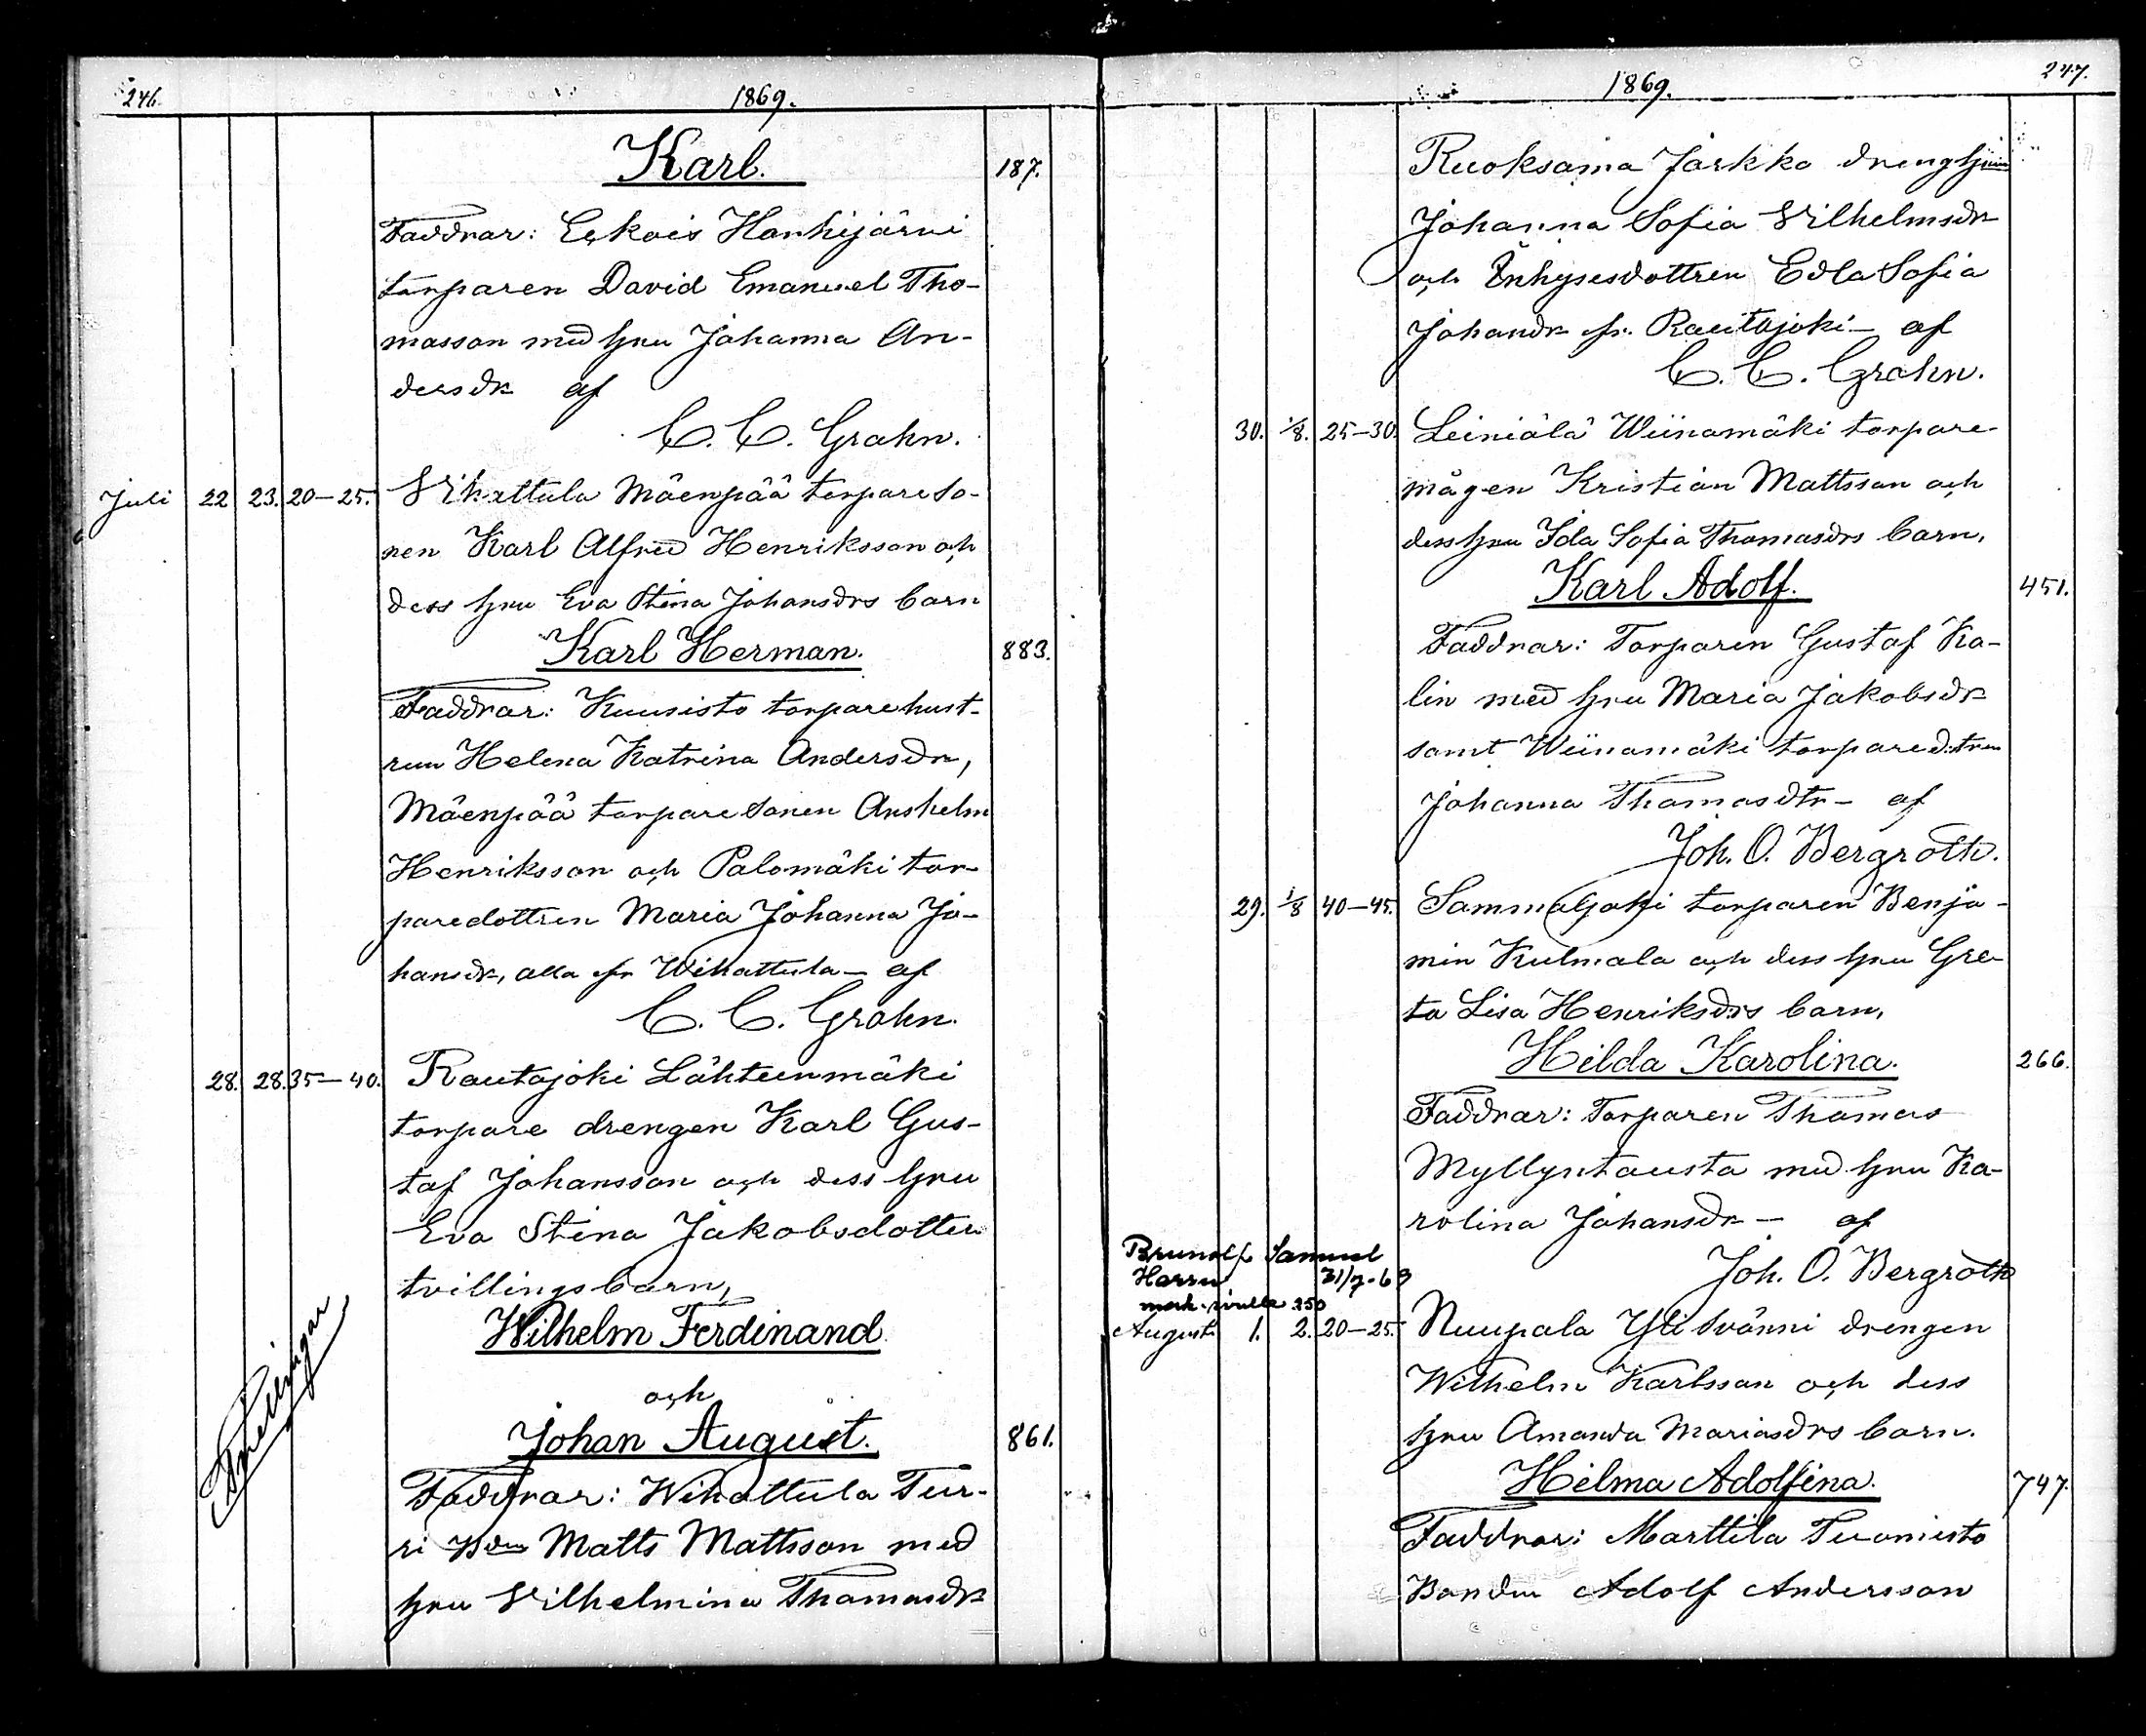 246.
1869.
Karl.
187.
Faddrar: Eckois Hanhijärvi
torparen David Emanuel Tho-
masson med hru Johanna An-
dersdr af
C. C. Grahn.
Juli 22 23. 20-25. Vihattula Mäenpää torpareso-
nen Karl Alfred Henriksson och
dess hru Eva Stina Johansdrs barn
Karl Herman.
883.
Faddrar: Kuusisto torparehust-
run Helena Katrina Andersdr,
Mäenpää torparesonen Anshelm
Henriksson och Palomäki tor-
paredottren Maria Johanna Jo-
hansdr, alla fr Wihattula – af
C. C. Grahn.
28. 28. 35-40. Rautajoki Lähteenmäki
torpare drengen Karl Gus-
taf Johansson och dess hru
Eva Stina Jakobsdotter
tvillingsbarn,
Wilhelm Ferdinand.
och
Johan August.
861.
Tvillingar
Faddrar: Wihattula Tur-
ri Bdn Matts Mattsson med
hru Vilhelmina Thomasdr
247.
1869.
Ruoksama Jarkko dreng
Johanna Sofia Vilhelmsdr
och Inhysesdottren Edla Sofia
Johansdr fr. Rautajoki – af
C. C. Grahn.
30. 1/8. 25-30. Leiniälä Wiinamäki torpare-
mågen Kristian Mattsson och
dess hru Ida Sofia Thomasdrs barn,
Karl Adolf.
451.
Faddrar: Torparen Gustaf Ka-
lin med hru Maria Jakobsdr
samt Wiinamäki torparedtren
Johanna Thomasdtr – af
Joh. O. Bergroth.
29. 1/8 40-45. Sammaljoki torparen Benja-
min Kulmala och dess hru Gre-
ta Lisa Henriksdrs barn,
Hilda Karolina.
266.
Faddrar: Torparen Thomas
Myllyntausta med hru Ka-
rolina Johansdr – af
Joh. O. Bergroth
Samuel
31/7-69
250
August 1. 2. 20-25. Nuupala Yli Svänni drengen
Wilhelm Karlsson och dess
hru Amanda Mariasdrs barn.
Hilma Adolfina.
747.
Faddrar: Marttila Tuomisto
Bonden Adolf Andersson